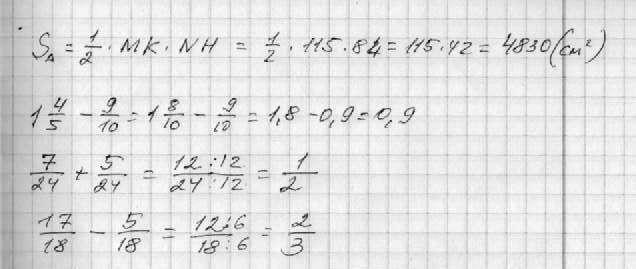 S△ = 1/2 · MK · NH = 1/2 · 115 · 84 = 115 · 42 = 4830 (см²)
1 4/5 − 9/10 = 1 8/10 − 9/10 = 1,8 − 0,9 = 0,9
7/24 + 5/24 = 12:12/24:12 = 1/2
17/18 − 5/18 = 12:6/18:6 = 2/3